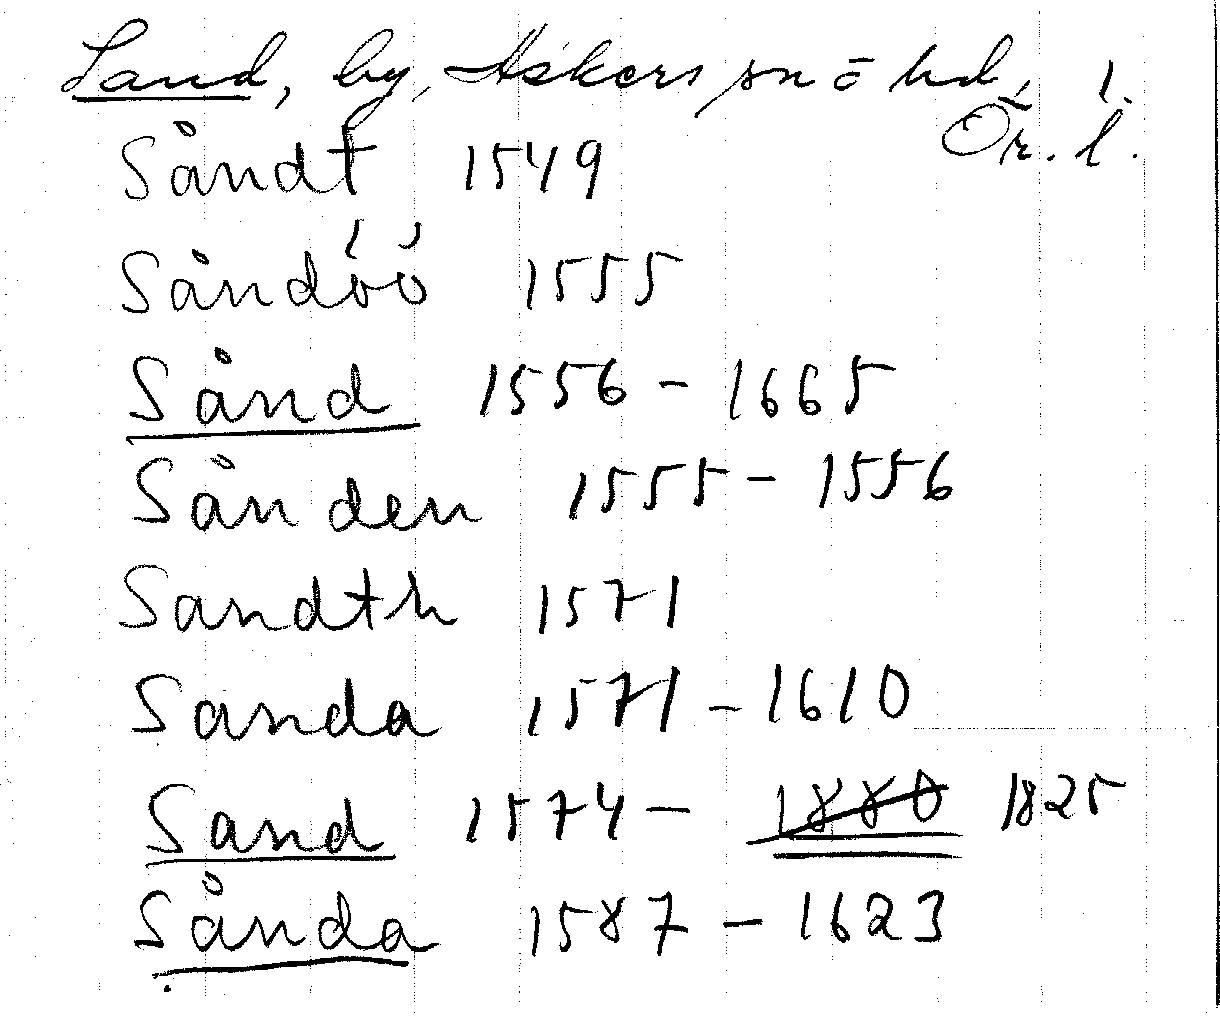 Sand, by, Askers sn o hd, 1.
Ör. l.
Såndt 1549
Såndöö 1555
Sånd 1556 - 1665
Sånden 1555 - 1556
Sandth 1571
Sanda 1571 - 1610
Sand 1574 - 1880 1825
Sånda 1587 - 1623